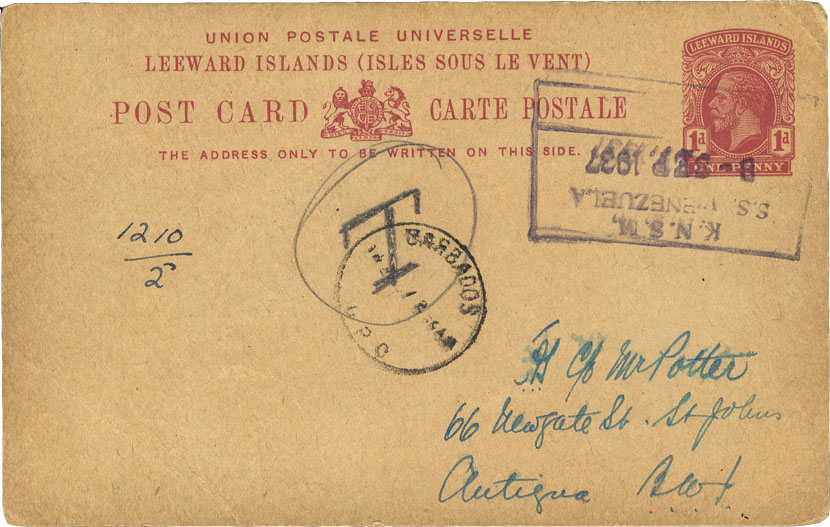 UNION POSTALE UNIVERSELLE
LEEWARD ISLANDS (ISLES SOUS LE VENT)
POST CARD CARTE POSTALE
THE ADDRESS ONLY TO BE WRITTEN ON THIS SIDE.
LEEWARD ISLANDS
1d 1d
ONE PENNY
K.N.S.M.
S.S. VENEZUELA
SEP. 1937
1210
2
T
BARBADOS
G P O
c/o Mr Potter
66 Newgate St. St Johns
Antigua B.W.I.